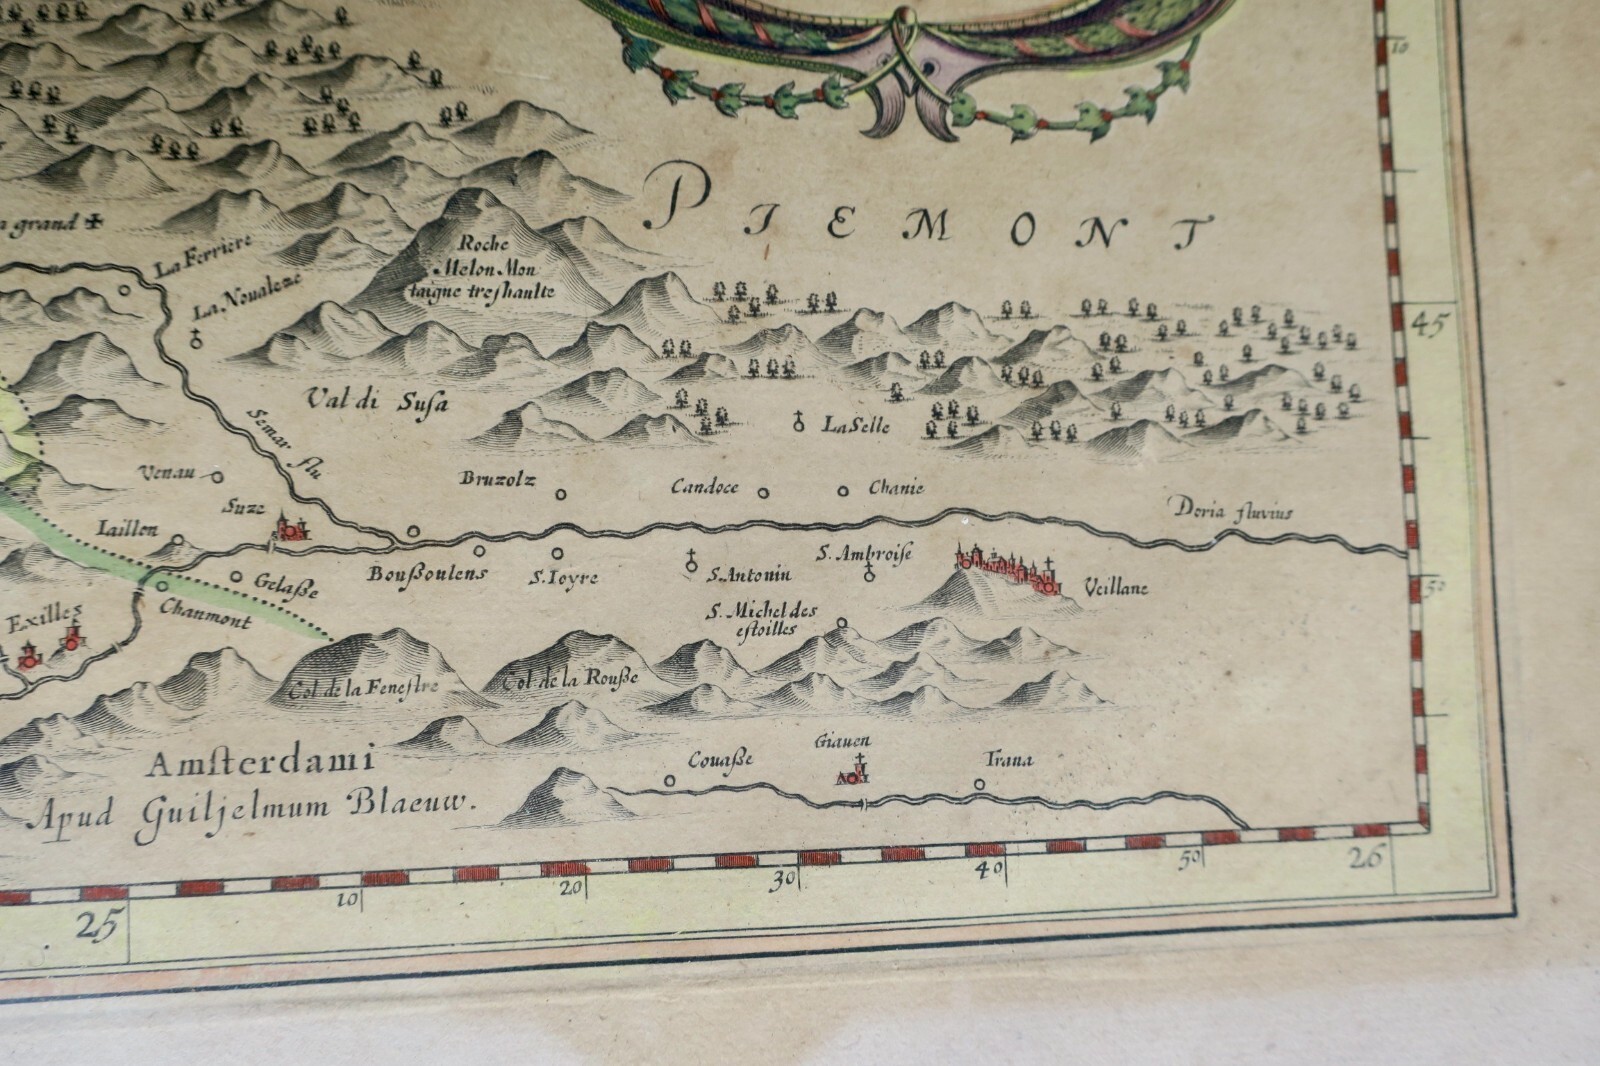 10
PIEMONT
grand
La Ferriere
La Noualeze
Roche
Melon Mon
taigne treſhaulte
45
Val di Suſa
Semar flu
La Selle
Venau
Suze
Bruzolz
Candoce
Chanie
Doria fluvius
Iaillon
Bouſſoulens
S. Ioyre
S. Antonin
S. Ambroiſe
Veillane
50
Gelaße
Chanmont
Exilles
S. Michel des
eſtoilles
Col de la Feneſtre
Col de la Rouße
Amſterdami
Apud Guiljelmum Blaeuw.
Couaße
Giauen
Trana
25
10
20
30
40
50
26